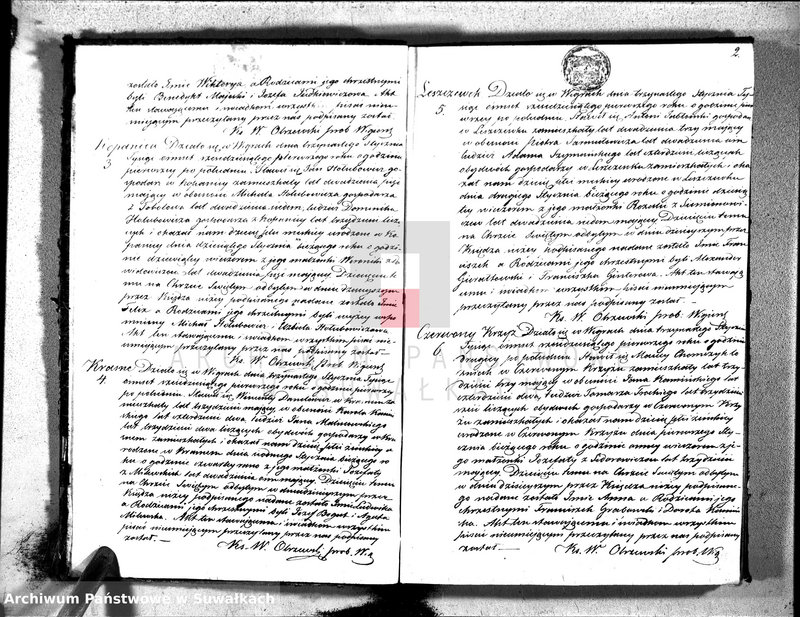 zostało Imie Wiktorya a Rodzicami jego chrzestnymi
byli Benedykt Majewski i Jozefa Akt
ten stawaiącemu i swiadkom wszystkim pisać nieu-
mieiącym przeczytany przez nas podpisany został.
Ks. W. Obrzewski prob. Wigiers.
Kopanica
3.
Działo się w Wigrach dnia trzynastego Stycznia
Tysiąc ośmset sześćdziesiątego pierwszego roku o godzinie
pierwszej po południu. Stawił się Jan Hołubowicz gos-
podarz w Kopanicy zamieszkały lat dwadzieścia pięć
mający w obecności Michała Hołubowicza gospodarza
lat dwadzieścia siedem, tudzież Dominika
Hołubowicza gospodarza z Kopanicy lat trzydzieści licz-
ących i okazał nam dziecię płci męskiej urodzone w Ko-
panicy dnia dziesiątego Stycznia bieżącego roku o godzi-
nie dziewiątej wieczorem z jego małżonki Weroniki
lat dwadzieścia pięć mającej. Dziecięciu te-
mu na Chrzcie Świętym odbytym w dniu dzisiejszym
przez Księdza niżej podpisanego nadane zostało Imie
Felix a Rodzicami jego chrzestnymi byli wyżej wspo-
mniony Michał Hołubowicz i Hołubowiczowna
Akt ten stawaiącemu i swiadkom wszystkim pisać nie-
umieiącym przeczytany przez nas podpisany został.
Ks. W. Obrzewski prob. Wigiers.
Krasne
4.
Działo się w Wigrach dnia trzynastego Stycznia Tysiąc
ośmset sześćdziesiątego pierwszego roku o godzinie pierwszej
po południu. Stawił się Wincenty w Krasnem za-
mieszkały lat trzydzieści mający, w obecności Karola
lat czterdzieści dwa, tudzież Jana Malinowskiego
lat trzydzieści dwa liczących obydwóch gospodarzy w Kra-
snem zamieszkałych i okazał nam dziecię płci żeńskiej u-
rodzone w Krasnem dnia siódmego Stycznia bieżącego ro-
ku o godzinie czwartej rano z jego małżonki Jozefaty
z Milewskich lat dwadzieścia mającej. Dziecięciu temu
na Chrzcie Świętym odbytym w dniu dzisiejszym przez
Księdza niżej podpisanego nadane zostało Imie Ludwika
a Rodzicami jego chrzestnymi byli Jozef Bogut i Agata
Milewska. Akt ten stawaiącemu i swiadkom wszystkim
pisać nieumieiącym przeczytany przez nas podpisany
został.—
Ks. W. Obrzewski prob. W.
2.
Leszczewek
5.
Działo się w Wigrach dnia trzynastego Stycznia Ty-
siąc ośmset sześćdziesiątego pierwszego roku o godzinie pier-
wszej po południu. Stawił się Antoni Jabłoński gospodarz
w Leszczewku zamieszkały lat dwadzieścia trzy mający
w obecności Piotra lat dwadzieścia
tudzież Adama Szymańskiego lat czterdzieści liczących
obydwóch gospodarzy w Leszczewku zamieszkałych i oka-
zał nam dziecię płci męskiej urodzone w Leszczewku
dnia drugiego Stycznia bieżącego roku o godzinie dziesią-
tej wieczorem z jego małżonki Rozalii z
lat dwadzieścia siedem mającej. Dziecięciu temu
na Chrzcie Świętym odbytym w dniu dzisiejszym przez
Księdza niżej podpisanego nadane zostało Imie Fran-
ciszek a Rodzicami jego chrzestnymi byli Alexander
i Franciszka Akt ten stawaiąc-
emu i swiadkom wszystkim pisać nieumieiącym
przeczytany przez nas podpisany został.—
Ks. W. Obrzewski prob. Wigiers.
Czerwony Krzyż
6.
Działo się w Wigrach dnia trzynastego Stycznia
Tysiąc ośmset sześćdziesiątego pierwszego roku o godzinie
drugiej po południu. Stawił się Maciej
w Czerwonym Krzyżu zamieszkały lat trzy-
dzieści trzy mający w obecności Jana Kamińskiego lat
czterdzieści dwa, tudzież Tomasza lat trzydzie-
ści liczących obydwóch gospodarzy w Czerwonym Krzy-
żu zamieszkałych i okazał nam dziecię płci żeńskiej
urodzone w Czerwonym Krzyżu dnia pierwszego Sty-
cznia bieżącego roku o godzinie osmej wieczorem z je-
go małżonki Jozefaty z Sidorowiczow lat trzydzieści
mającej. Dziecięciu temu na Chrzcie Świętym odbytym
w dniu dzisiejszym przez Księdza niżej podpisane-
go nadane zostało Imie Anna a Rodzicami jego
chrzestnymi Franciszek Grabowski i Dorota Kamiń-
ska. Akt ten stawaiącemu i swiadkom wszystkim
pisać nieumieiącym przeczytany przez nas podpisany
został.—
Ks. W. Obrzewski prob. Wig
Archiwum Państwowe w Suwałkach